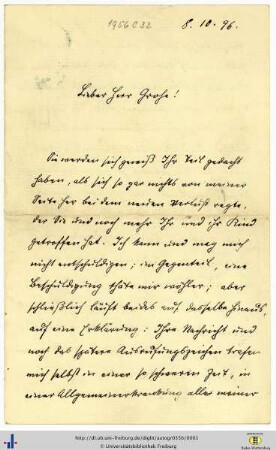 1956 C 32
8. 10. 96.
Lieber Herr Grohe!
Sie werden sich gewiß Ihr Teil gedacht
haben, als sich so gar nichts von meiner
Seite her bei dem neuen Verlust regte,
der Sie und noch mehr Ihr und ihr Kind
getroffen hat. Ich kann und mag mich
nicht entschuldigen; im Gegenteil, eine
Beschuldigung thäte mir wöhler; aber
schließlich läuft beides auf dasselbe hinaus,
auf eine Erklärung: Ihre Nachricht und
noch das spätere Ausrufungszeichen trafen
mich selbst in einer so schweren Zeit, in
einer Allgemeinerkrankung alles meiner
http://dl.ub.uni-freiburg.de/diglit/autogr0556/0001
© Universitätsbibliothek Freiburg
Baden-Württemberg